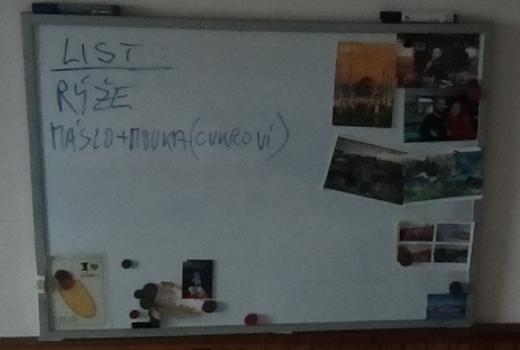 LIST
RÝŽE
MÁSLO+MOUKA(CUKROVÍ)
I